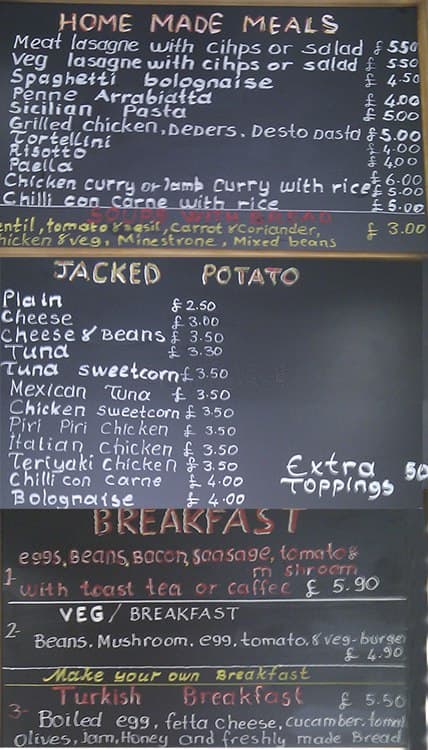 HOME MADE MEALS
Meat lasagne with cihps or salad £ 5.50
Veg lasagne with cihps or salad £ 5.50
Spaghetti bolognaise £ 4.50
Penne Arrabiatta £ 4.00
Sicilian Pasta £ 5.00
Grilled chicken, Depers, Desto pasta £ 5.00
Tortellini £ 4.00
Risotto £ 4.00
Paella £ 6.00
Chicken curry or lamb curry with rice £ 5.00
Chilli con carne with rice £ 5.00
SOUPS WITH BREAD
entil, tomato & basil, Carrot & Coriander, £ 3.00
hicken & veg, Minestrone, Mixed beans
JACKED POTATO
Plain £ 2.50
Cheese £ 3.00
Cheese & Beans £ 3.50
Tuna £ 3.30
Tuna sweetcorn £ 3.50
Mexican Tuna £ 3.50
Chicken sweetcorn £ 3.50
Piri Piri Chicken £ 3.50
Italian Chicken £ 3.50
Teriyaki Chicken £ 3.50
Chilli con carne £ 4.00
Bolognaise £ 4.00
Extra 50
Toppings
BREAKFAST
eggs, Beans, Bacon, Saasage, tomato &
1- m shroom
with toast tea or caffee £ 5.90
VEG / BREAKFAST
2- Beans, Mushroom, egg, tomato, & veg-burge
£ 4.90
Make your own Breakfast
Turkish Breakfast £ 5.50
3- Boiled egg, fetta cheese, cucamber, tomat
Olives, Jam, Honey and freshly made Bread